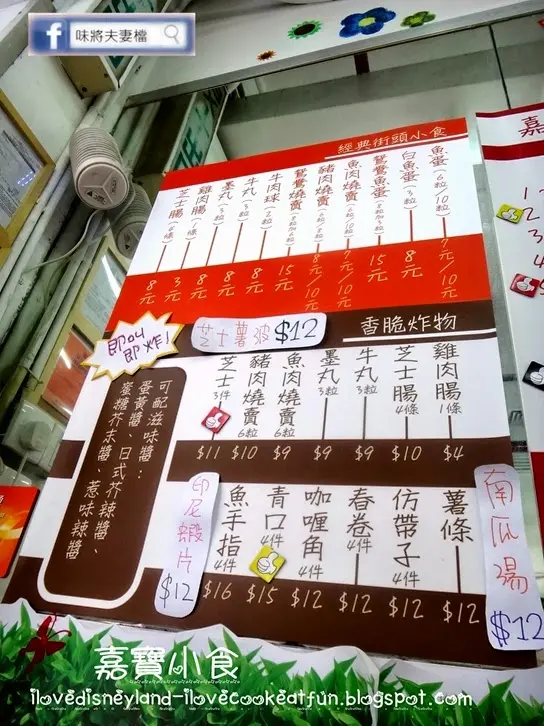 味將夫妻檔
經典街頭小食
魚蛋(6粒/10粒) 7元/10元
白魚蛋 8元
鴛鴦魚蛋 15元
魚肉燒賣 7元/10元
豬肉燒賣 8元/10元
鴛鴦燒賣 15元
牛肉球 8元
牛丸 8元
墨丸 8元
雞肉腸 3元
芝士腸 8元
香脆炸物
芝士薯波$12
即叫
即炸!
雞肉腸 1條 $4
芝士腸 4條 $10
牛丸 3粒 $9
墨丸 3粒 $9
魚肉燒賣 6粒 $9
豬肉燒賣 6粒 $10
芝士 3件 $11
可配滋味醬:
蛋黃醬、日式芥辣醬、
蜜糖芥末醬、惹味辣醬
薯條 $12
仿帶子 4件 $12
春卷 4件 $12
咖喱角 4件 $12
青口 4件 $15
魚手指 4件 $16
印尼蝦片 $12
南瓜湯 $12
嘉
1
2
3
4
嘉寶小食
ilovedisneyland-ilovecookeatfun.blogspot.com